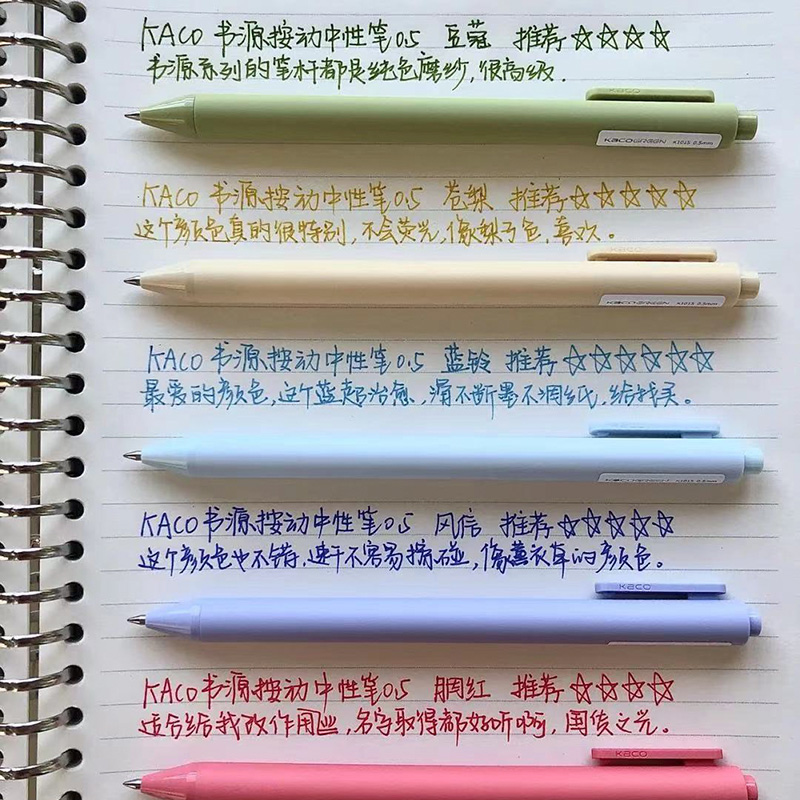 KACO 书源按动中性笔0.5 豆蔻 推荐☆☆☆☆
书源系列的笔杆都是纯色磨纱，很高级.
KACO
KACOGREEN K1015 0.5mm
KACO 书源按动中性笔0.5 苍梨 推荐☆☆☆☆☆
这个颜色真的很特别，不会荧光，像梨子色，喜欢。
KACOGREEN K1015 0.5mm
KACO 书源按动中性笔0.5 蓝铃 推荐☆☆☆☆☆☆
最爱的颜色，这个蓝超治愈，滑不断墨不洇纸，给我买。
KACO书源按动中性笔0.5 风信 推荐☆☆☆☆☆
这个颜色也不错，速干不容易擦碰，像薰衣草的颜色。
KACO
KACO书源按动中性笔0.5 胭红 推荐☆☆☆☆
适合给我改作用，名字取得都好听啊，国货之光。
KACO